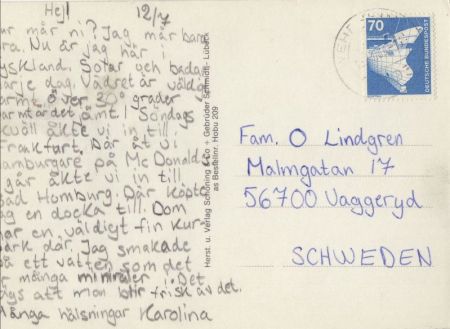 Hej! 12/7
ur mår ni? Jag mår bara
ra. Nu är jag här i
yskland. Sotar och badar
arje dag. Vädret är väldi
arm över 30 grader
armtärdet ämt. I Söndags
kväll åkte vi in till
rankfurt. Där åt vi
amburgare på Mc Donalds
går åkte vi in till
ad Homburg. Där köpte
ag en docka till. Dom
ar en väldigt fin kur-
ark där. Jag smakade
å ett vatten som det
r många mineraler i. Det
ägs att man blir frisk av det.
Många hälsningar Karolina
Herst. u. Verlag Schöning & Co + Gebrüder Schmidt - Lübeck
as Bestellnr. Hobu 209
70
DEUTSCHE BUNDESPOST
Fam. O Lindgren
Malmgatan 17
56700 Vaggeryd
SCHWEDEN